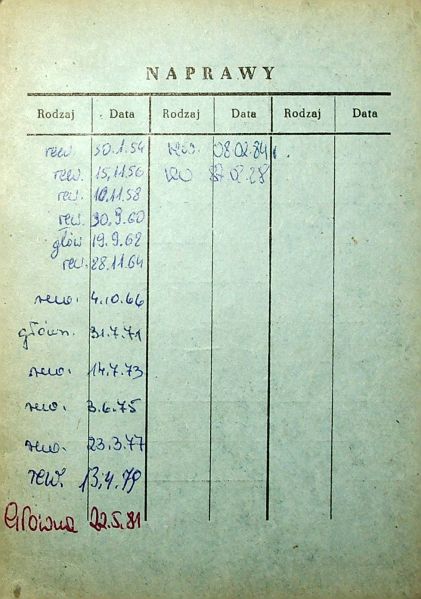 NAPRAWY
Rodzaj Data Rodzaj Data Rodzaj Data
rew. 30.1.54 rew. 08.02.84
rew. 15.11.56
rew. 10.11.58
rew. 30.9.60
głów 19.9.62
rew. 28.11.64
rew. 4.10.66
główn. 31.7.71
rew. 14.7.73
rew. 3.6.75
rew. 23.3.77
rew. 13.4.79
Główna 22.5.81